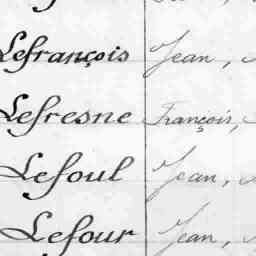 Lefrançois Jean,
Lefresne François,
Lefoul Jean,
Lefour Jean,